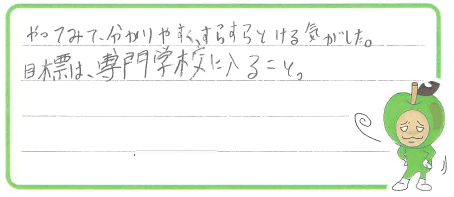 やってみて、分かりやすく、すらすらとける気がした。
目標は、専門学校に入ること。